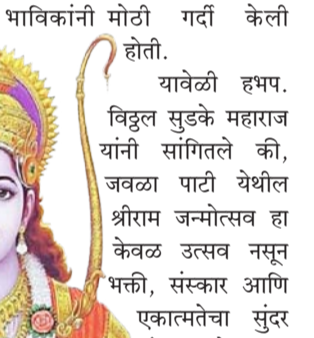 भाविकांनी मोठी गर्दी केली
होती.
यावेळी हभप.
विठ्ठल सुडके महाराज
यांनी सांगितले की,
जवळा पाटी येथील
श्रीराम जन्मोत्सव हा
केवळ उत्सव नसून
भक्ती, संस्कार आणि
एकात्मतेचा सुंदर